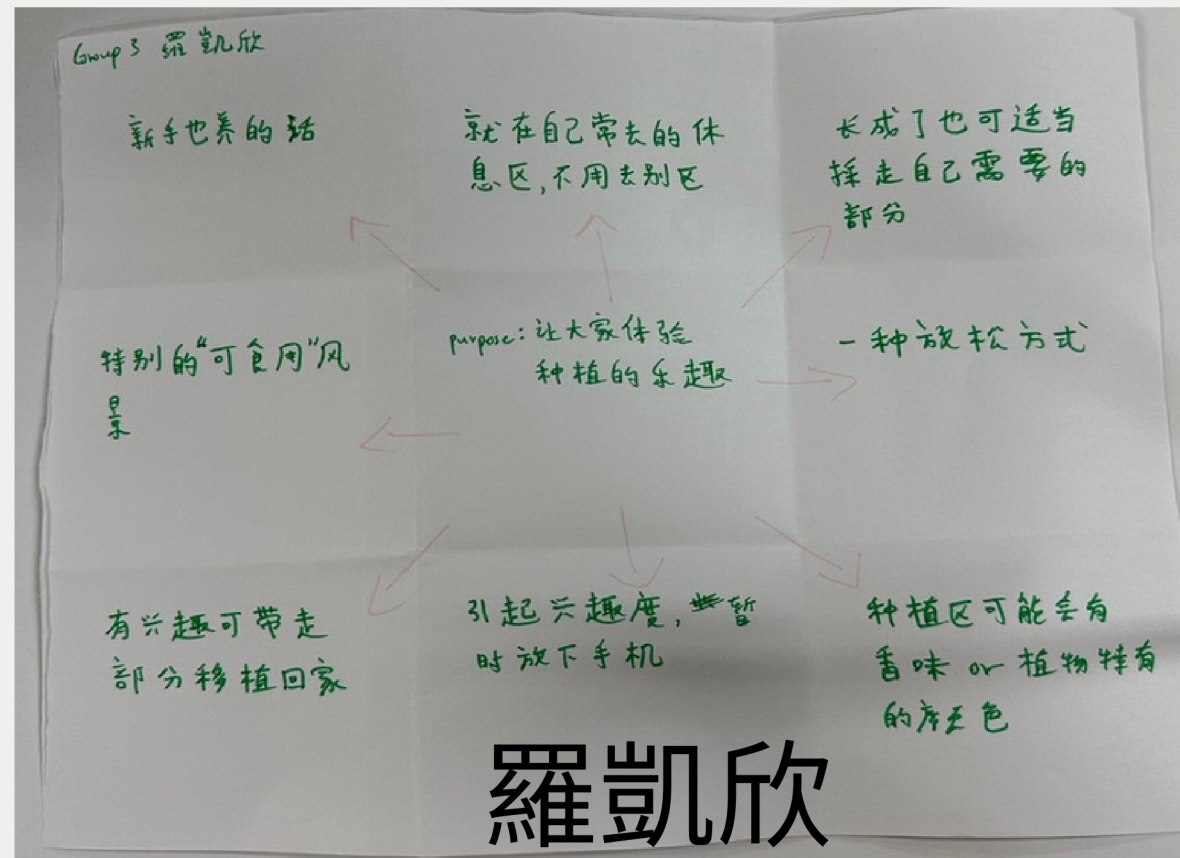 Group 3 羅凱欣
新手也养的活
就在自己常去的休
息区,不用去别区
长成了也可适当
採走自己需要的
部分
特别的“可食用”风
景
purpose:让大家体验
种植的乐趣
一种放松方式
有兴趣可带走
部分移植回家
引起兴趣度,暂
时放下手机
种植区可能会有
香味 or 植物特有
的色
羅凱欣